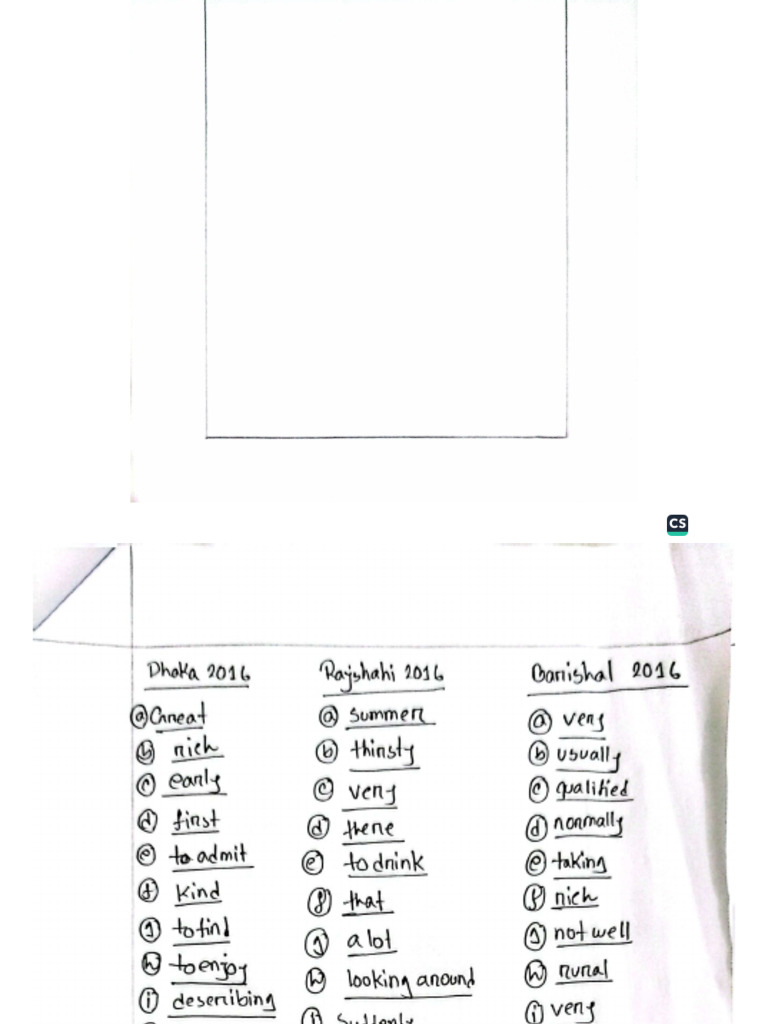 CS
Dhaka 2016
(a) Great
(b) rich
(c) early
(d) first
(e) to admit
(f) kind
(g) to find
(h) to enjoy
(i) describing
Rajshahi 2016
(a) summer
(b) thirsty
(c) very
(d) there
(e) to drink
(f) that
(g) a lot
(h) looking around
(i) Suddenly
Barishal 2016
(a) very
(b) usually
(c) qualified
(d) normally
(e) taking
(f) rich
(g) not well
(h) rural
(i) very